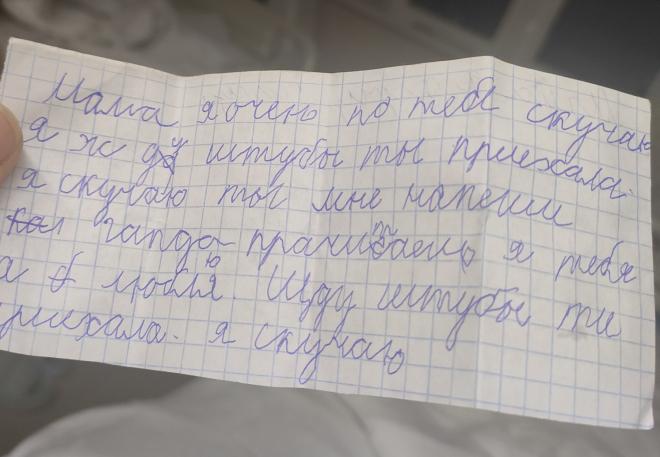 Мама я очень по тебе скучаю
я ж ду штубы ты приехала
я скучаю ты мне напеши
кагда прачитаешь я тебя
люблю. Щду штубы ты
приехала. я скучаю